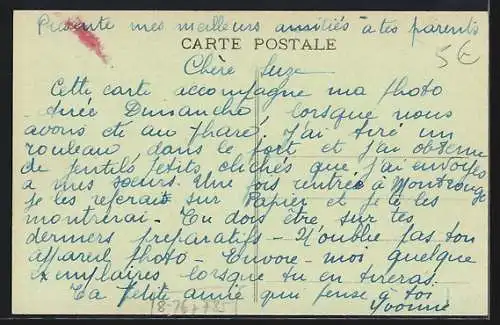 Présente mes meilleurs amitiés à tes parents
CARTE POSTALE
5€
Chère Suze
Cette carte accompagne ma photo
tirée Dimanche, lorsque nous
avons été au Phare. J'ai tiré un
rouleau dans le fort et j'ai obtenu
de gentils petits clichés que j'ai envoyés
à mes sœurs. Une fois rentrée à Montrouge
je les referai sur Papier et je te les
montrerai - Tu dois être sur tes
derniers préparatifs - N'oublie pas ton
appareil photo - Envoie-moi quelque
exemplaires lorsque tu en tireras.
Ta petite amie qui pense à toi
Yvonne